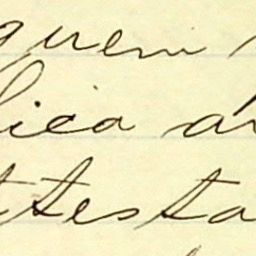 quem
lica a
ttesta